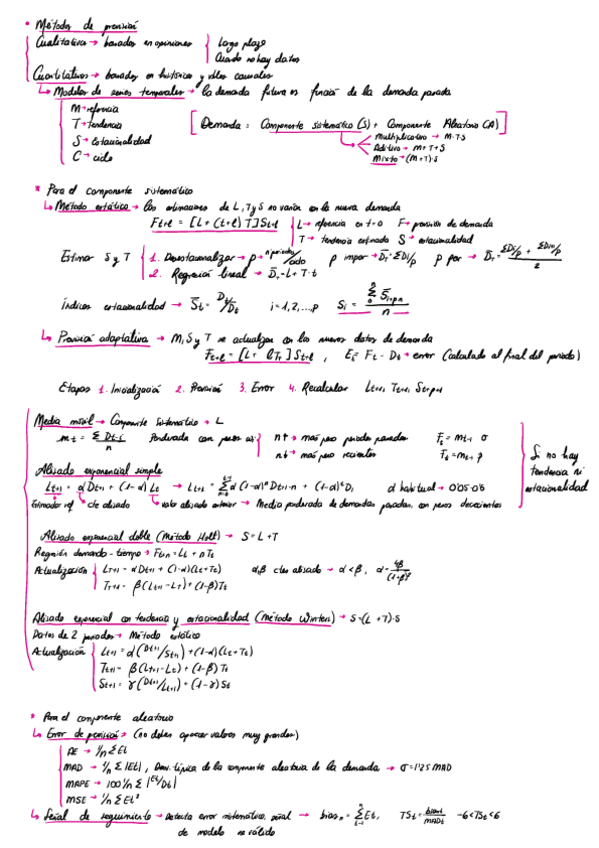 • Métodos de previsión
Cualitativos → basados en opiniones { Largo plazo
Cuando no hay datos
Cuantitativos → basados en históricos y rels causales
↳ Modelos de series temporales → la demanda futura es función de la demanda pasada
M → referencia
T → tendencia
S → estacionalidad
C → ciclo
[Demanda = Componente sistemático (S) + Componente Aleatorio (A)]
Multiplicativo → M·T·S
Aditivo → M+T+S
Mixto → (M+T)·S
* Para el componente sistemático
↳ Método estático → las estimaciones de L, T y S no varían con la nueva demanda
Ft+l = [L + (t+l) T] St+l
L → referencia en t=0 F → previsión de demanda
T → tendencia estimada S → estacionalidad
Estimar S y T { 1. Desestacionalizar → p → nº periodos/ciclo p impar → D̄t = ΣDi/p p par →
2. Regresión lineal → D̄t = L + T·t
Índices estacionalidad → S̄t = Dt/D̄t i = 1,2,...,p
↳ Previsión adaptativa → M, S y T se actualizan con los nuevos datos de demanda
, Et = Ft - Dt → error (calculado al final del periodo)
Etapas 1. Inicialización 2. Previsión 3. Error 4. Recalcular Lt+1, Tt+1, St+p+1
Media móvil → Componente Sistemático = L
Ponderada con pesos wi
n↑ → más peso periodos pasados
n↓ → más peso recientes
Si no hay
tendencia ni
estacionalidad
Alisado exponencial simple
Lt+1 = α Dt+1 + (1-α) Lt
α habitual → 0'05-0'5
Estimador ref cte alisado valor alisado anterior → Media ponderada de demandas pasadas, con pesos decrecientes
Alisado exponencial doble (Método Holt) → S = L + T
Regresión demanda - tiempo → Ft+n = Lt + n Tt
Actualización { Lt+1 = α Dt+1 + (1-α)(Lt+Tt)
Tt+1 = β (Lt+1 - Lt) + (1-β) Tt
α,β ctes alisado → α < β,
Alisado exponencial con tendencia y estacionalidad (Método Winter) → S = (L+T)·S
Datos de 2 periodos → Método estático
Actualización { Lt+1 = α (Dt+1/St+1) + (1-α)(Lt+Tt)
Tt+1 = β (Lt+1 - Lt) + (1-β) Tt
St+1 = γ (Dt+1/Lt+1) + (1-γ) St
* Para el componente aleatorio
↳ Error de previsión → (no deben aparecer valores muy grandes)
AE → 1/n Σ Et
MAD → 1/n Σ |Et|, Desv. típica de la componente aleatoria de la demanda → σ = 1'25 MAD
MAPE → 100 1/n Σ |Et/Dt|
MSE → 1/n Σ Et²
↳ Señal de seguimiento → Detecta error sistemático, señal → biasn = Σ Et, TSt = biast/MADt -6<TSt<6
de modelo no válido